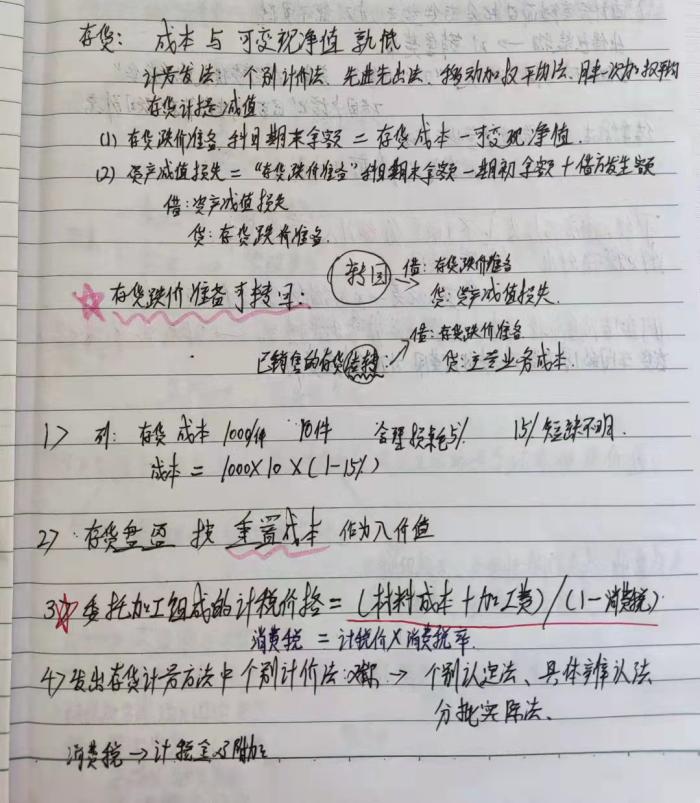 存货: 成本与可变现净值孰低
计量发法: 个别计价法、先进先出法、移动加权平均法、月末一次加权平均
存货计提减值
(1) 存货跌价准备科目期末余额 = 存货成本 - 可变现净值.
(2) 资产减值损失 = "存货跌价准备"科目期末余额 - 期初余额 + 借方发生额
借: 资产减值损失
贷: 存货跌价准备.
☆ 存货跌价准备可转回: 转回 → 借: 存货跌价准备
贷: 资产减值损失.
已销售的存货结转: → 借: 存货跌价准备
贷: 主营业务成本.
1> 列: 存货成本 1000/件 10件 合理损耗5% 15%短缺不明.
成本 = 1000×10×(1-15%)
2> 存货盘盈 按 重置成本 作为入价值
3☆ 委托加工组成的计税价格 = (材料成本+加工费)/(1-消费税)
消费税 = 计税价×消费税率.
4> 发出存货计量方法中个别计价法: → 个别认定法、具体辨认法
分批实际法、
消费税 → 计税金